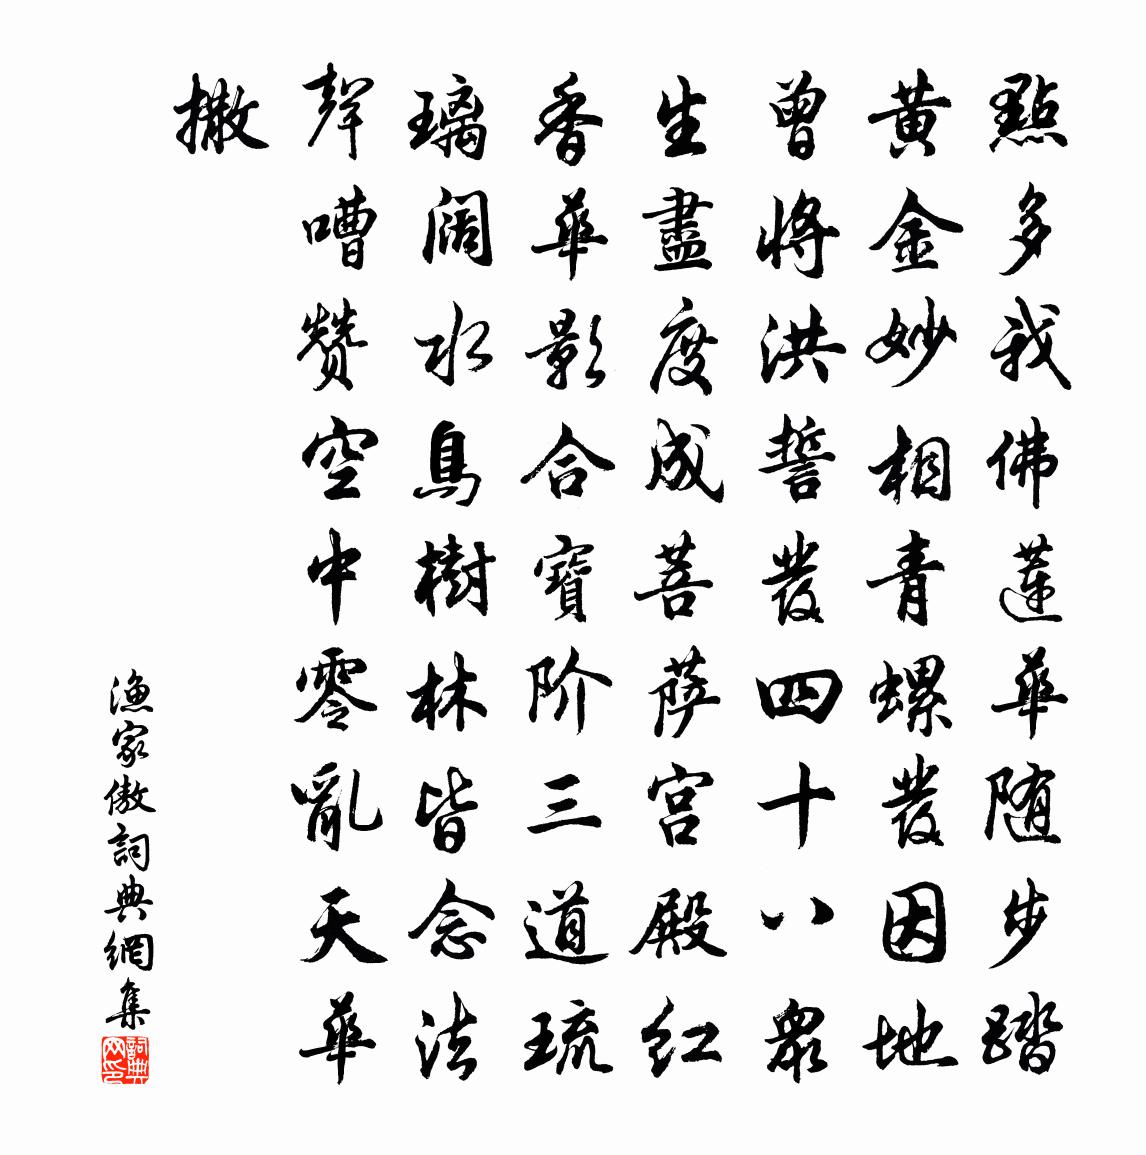 點多我佛蓮華随步踏
黄金妙相青螺發因地
曾將洪誓發四十八眾
生盡度成菩萨宫殿红
香華影合寶阶三道琉
璃阔水鳥樹林皆念法
聲嘈赞空中零亂天華
撒
漁家傲詞典網集
詞典网印